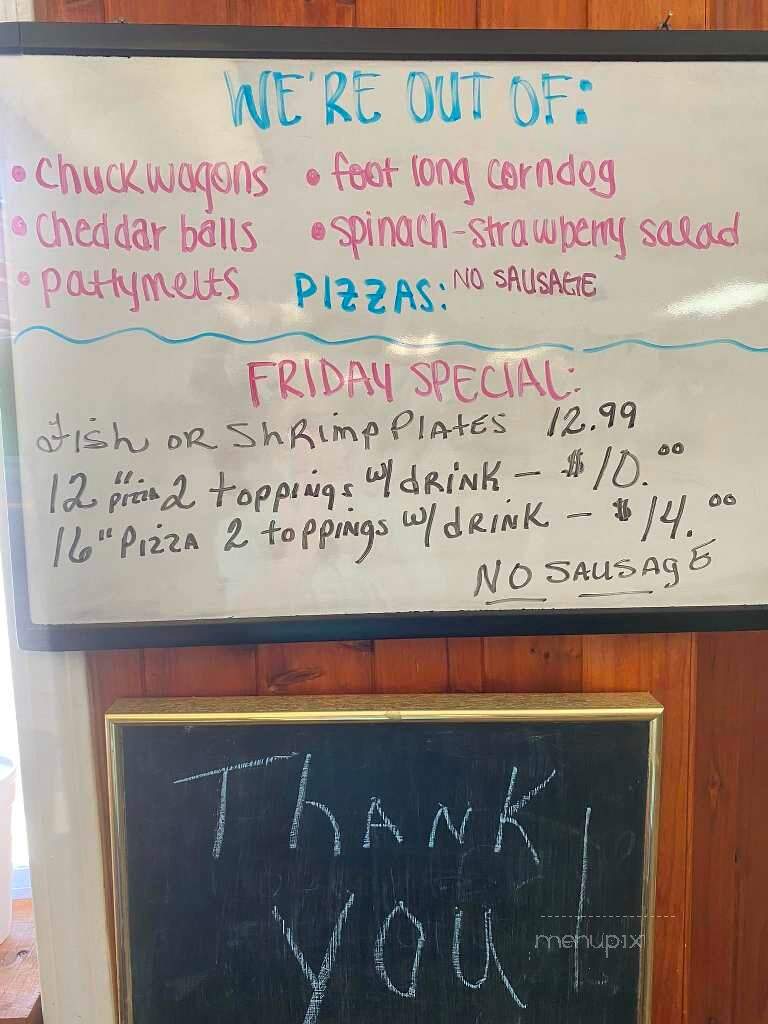 WE'RE OUT OF:
• Chuckwagons • foot long corndog
• Cheddar balls • spinach-strawberry salad
• pattymelts PIZZAS: NO SAUSAGE
FRIDAY SPECIAL:
Fish OR ShRimp PlAtES 12.99
12" pizza 2 toppings w/ dRINK - $10.00
16" PIZZA 2 toppings w/ dRINK - $14.00
NO SAUSAgE
ThANK
you!
menupix